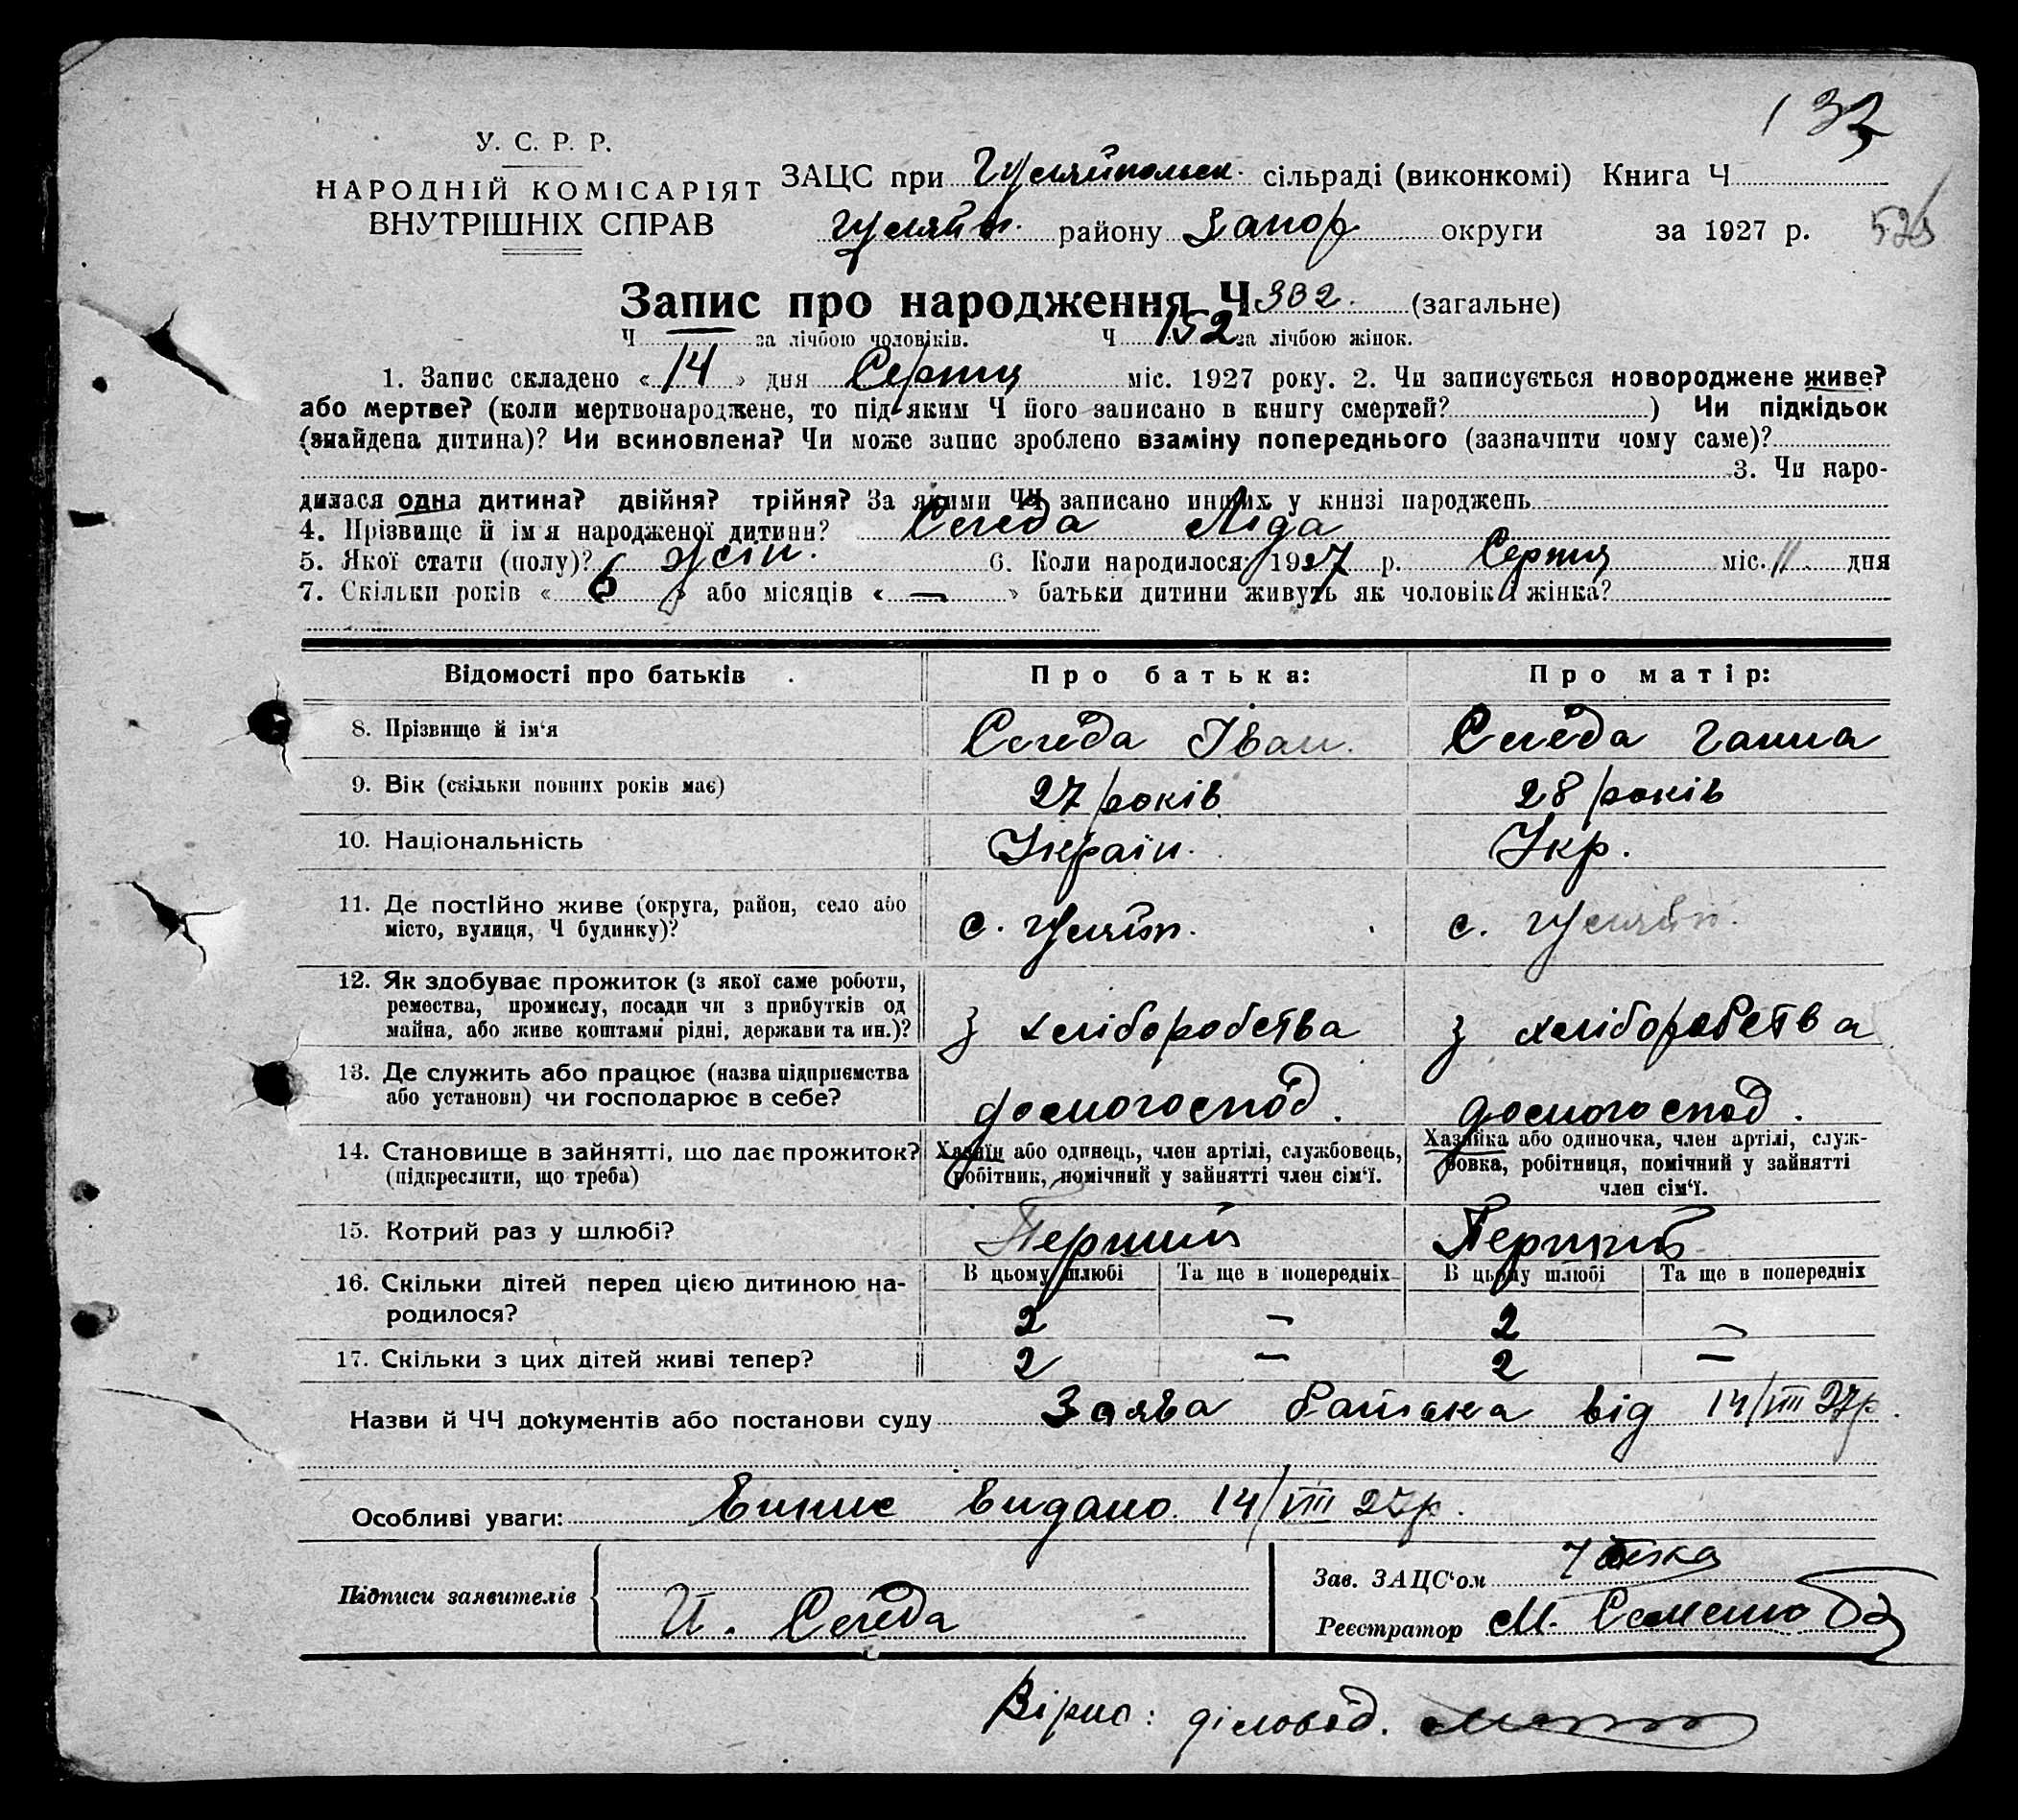 133
У. С. Р. Р.
НАРОДНІЙ КОМІСАРІЯТ
ВНУТРІШНІХ СПРАВ
ЗАЦС при Гуляйпольск. сільраді (виконкомі) Книга Ч
Гуляйп. району Запор округи за 1927 р.
Запис про народження Ч 302. (загальне)
Ч — за лічбою чоловіків. Ч 152 за лічбою жінок.
1. Запис складено « 14 » дня Серпня міс. 1927 року. 2. Чи записується новороджене живе?
або мертве? (коли мертвонароджене, то під яким Ч його записано в книгу смертей? ) Чи підкідьок
(знайдена дитина)? Чи всиновлена? Чи може запис зроблено взаміну попереднього (зазначити чому саме)?
3. Чи наро-
дилася одна дитина? двійня? трійня? За якими ЧЧ записано инших у книзі народжень
4. Прізвище й ім'я народженої дитини? Середа Ліда
5. Якої стати (полу)? жін. 6. Коли народилося? 1927 р. Серпня міс. 11. дня
7. Скільки років « 6 » або місяців « — » батьки дитини живуть як чоловік і жінка?
Відомості про батьків Про батька: Про матір:
8. Прізвище й ім'я Середа Іван. Середа Ганна
9. Вік (скільки повних років має) 27 років 28 років
10. Національність Україн. Укр.
11. Де постійно живе (округа, район, село або
місто, вулиця, Ч будинку)? с. Гуляйп. с. Гуляйп.
12. Як здобуває прожиток (з якої саме роботи,
ремества, промислу, посади чи з прибутків од
майна, або живе коштами рідні, держави та ин.)? з хліборобства з хліборобства
13. Де служить або працює (назва підприємства
або установи) чи господарює в себе? домогоспод. домогоспод.
14. Становище в зайнятті, що дає прожиток?
(підкреслити, що треба)
Хазяїн або одинець, член артілі, службовець,
робітник, помічний у зайнятті член сім'ї.
Хазяйка або одиночка, член артілі, служ-
бовка, робітниця, помічний у зайнятті
член сім'ї.
15. Котрий раз у шлюбі? Перший Перший
16. Скільки дітей перед цією дитиною на-
родилося?
В цьому шлюбі Та ще в попередніх В цьому шлюбі Та ще в попередніх
2 — 2 —
17. Скільки з цих дітей живі тепер? 2 — 2 —
Назви й ЧЧ документів або постанови суду Заява батька від 14/VIII 27р.
Особливі уваги: Випис видано 14/VIII 27р.
Підписи заявителів И. Середа
Зав. ЗАЦС'ом
Реєстратор М.
Вірно: діловод.